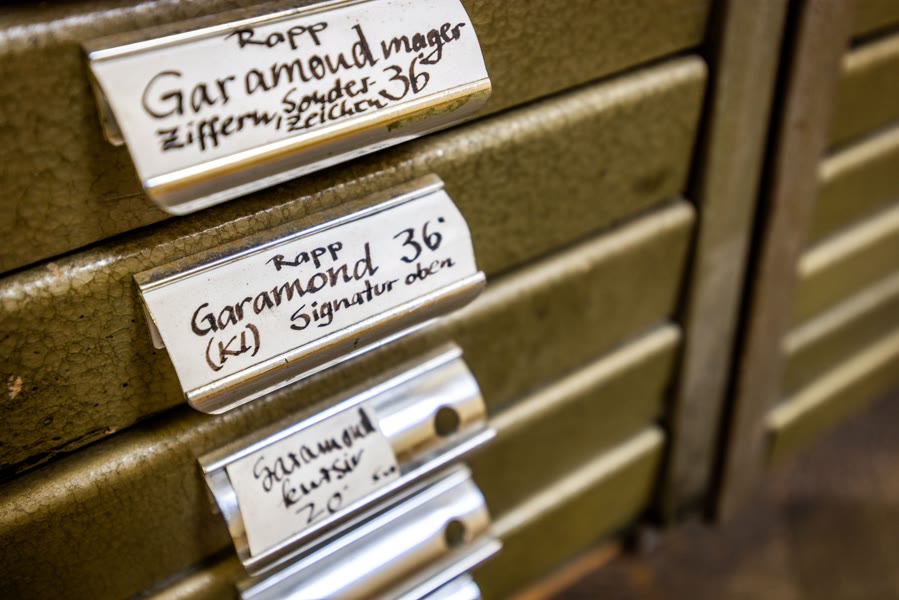 Rapp
Garamond mager
Ziffern, Sonder-
Zeichen 36
Rapp
Garamond 36°
(KI) Signatur oben
Garamond
kursiv
20°